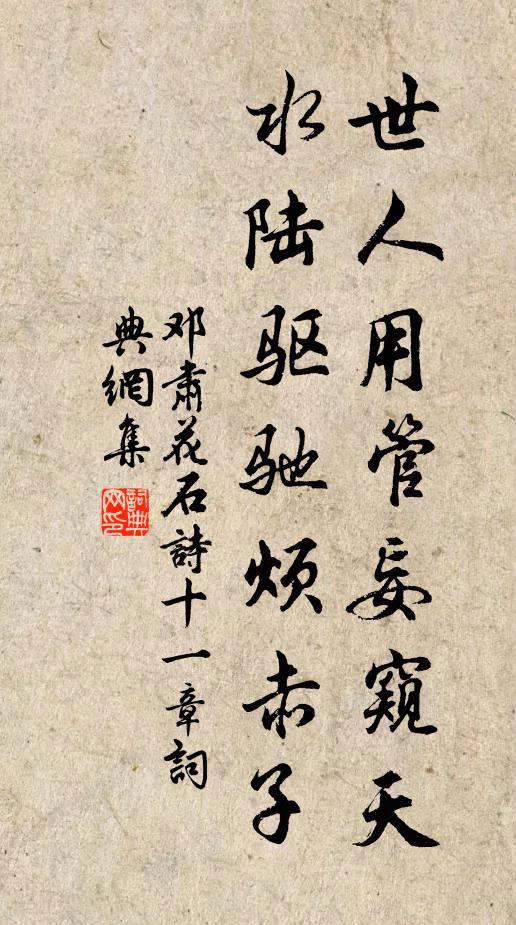 世人用管妄窺天
水陆驱驰烦赤子
邓肅花石詩十一章詞
典網集
詞典网印